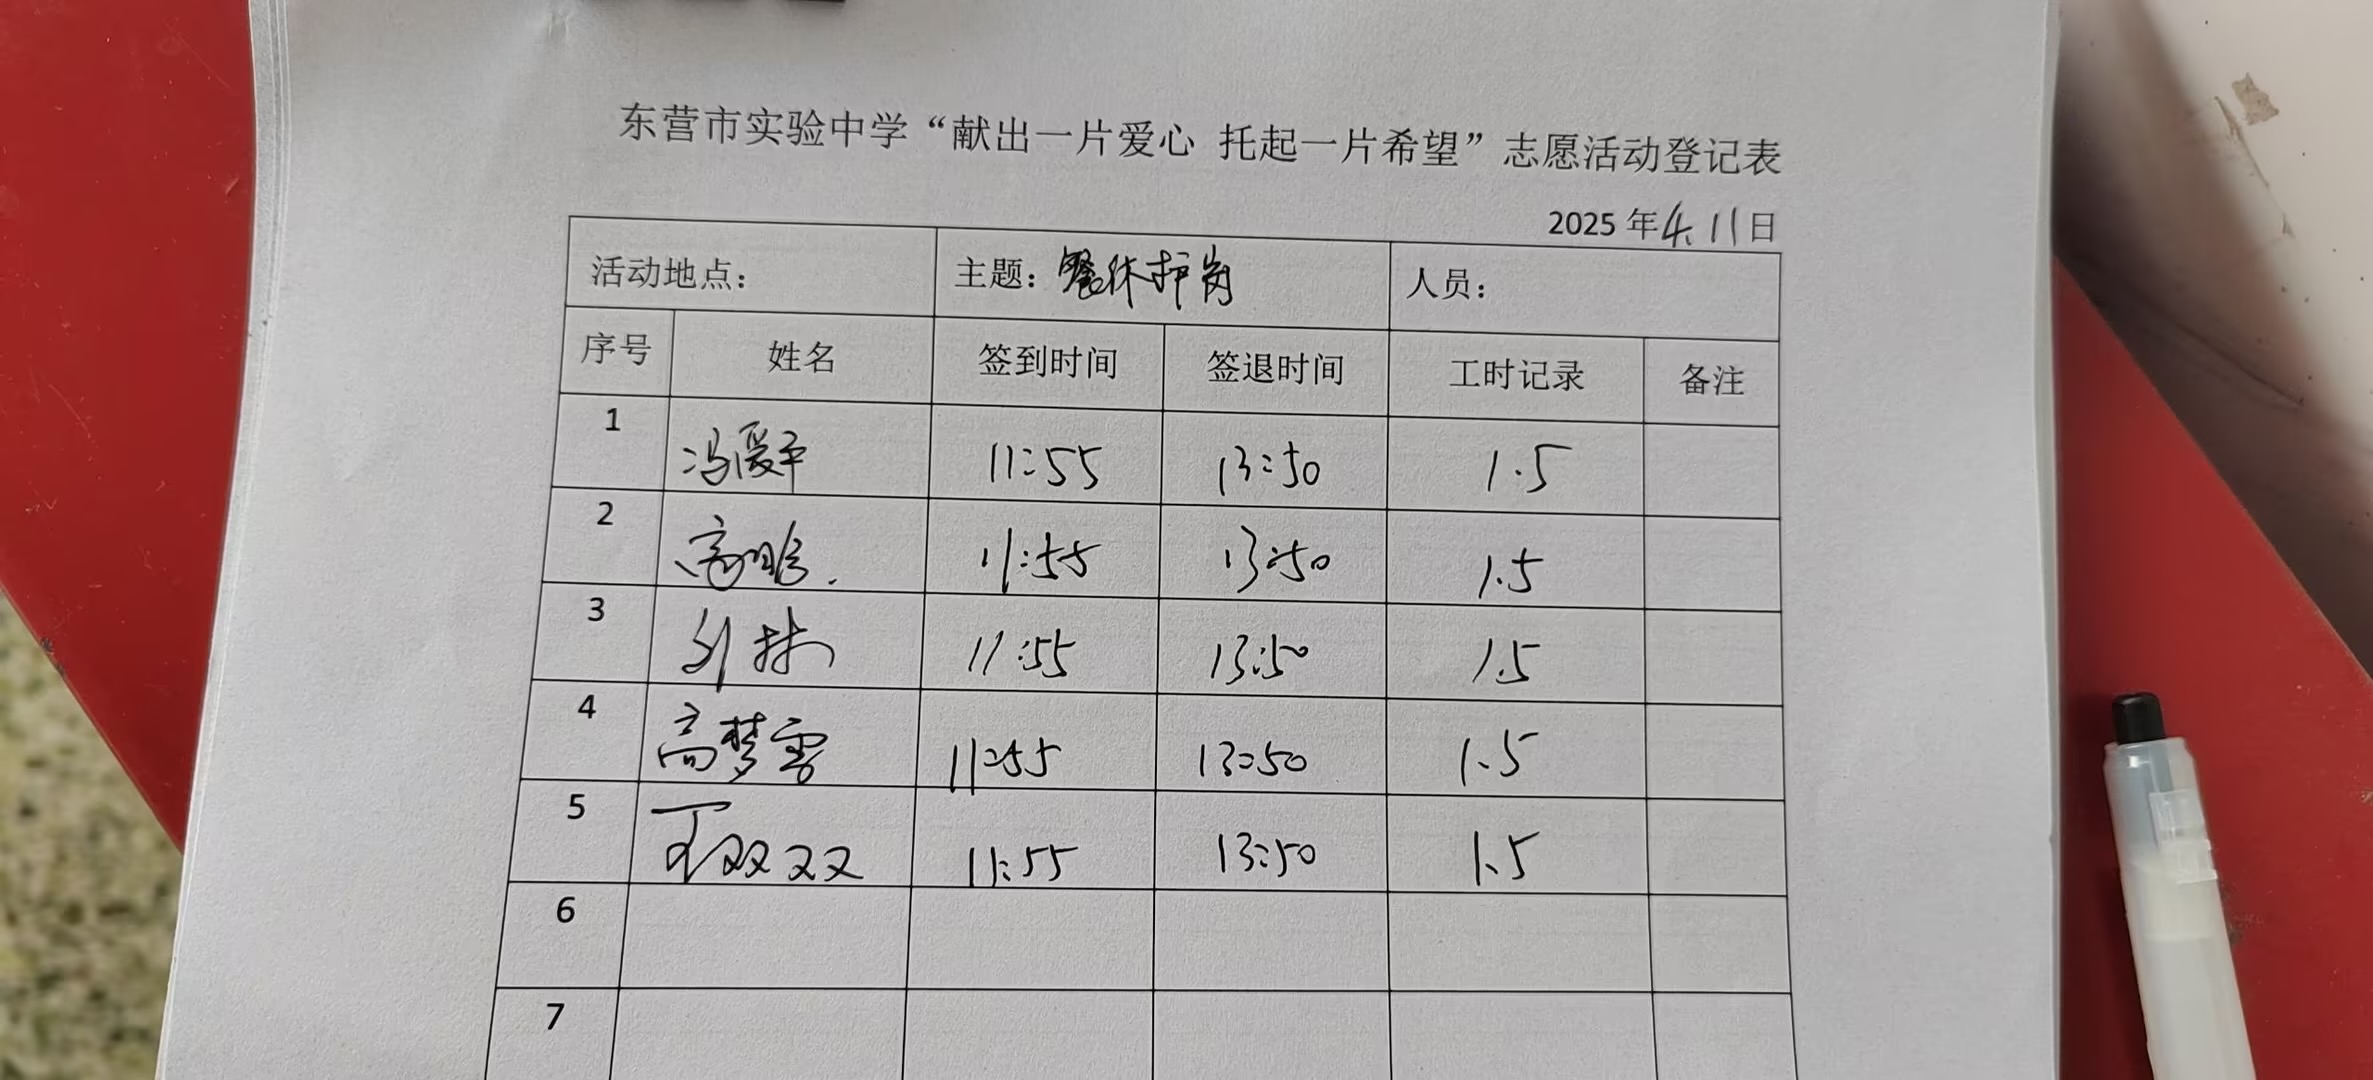 东营市实验中学“献出一片爱心 托起一片希望”志愿活动登记表
2025 年 4.11 日
活动地点： 主题：餐休护岗 人员：
序号 姓名 签到时间 签退时间 工时记录 备注
1 冯爱平 11:55 13:50 1.5
2 高 11:55 13:50 1.5
3 11:55 13:50 1.5
4 高梦雪 11:55 13:50 1.5
5 双双 11:55 13:50 1.5
6
7